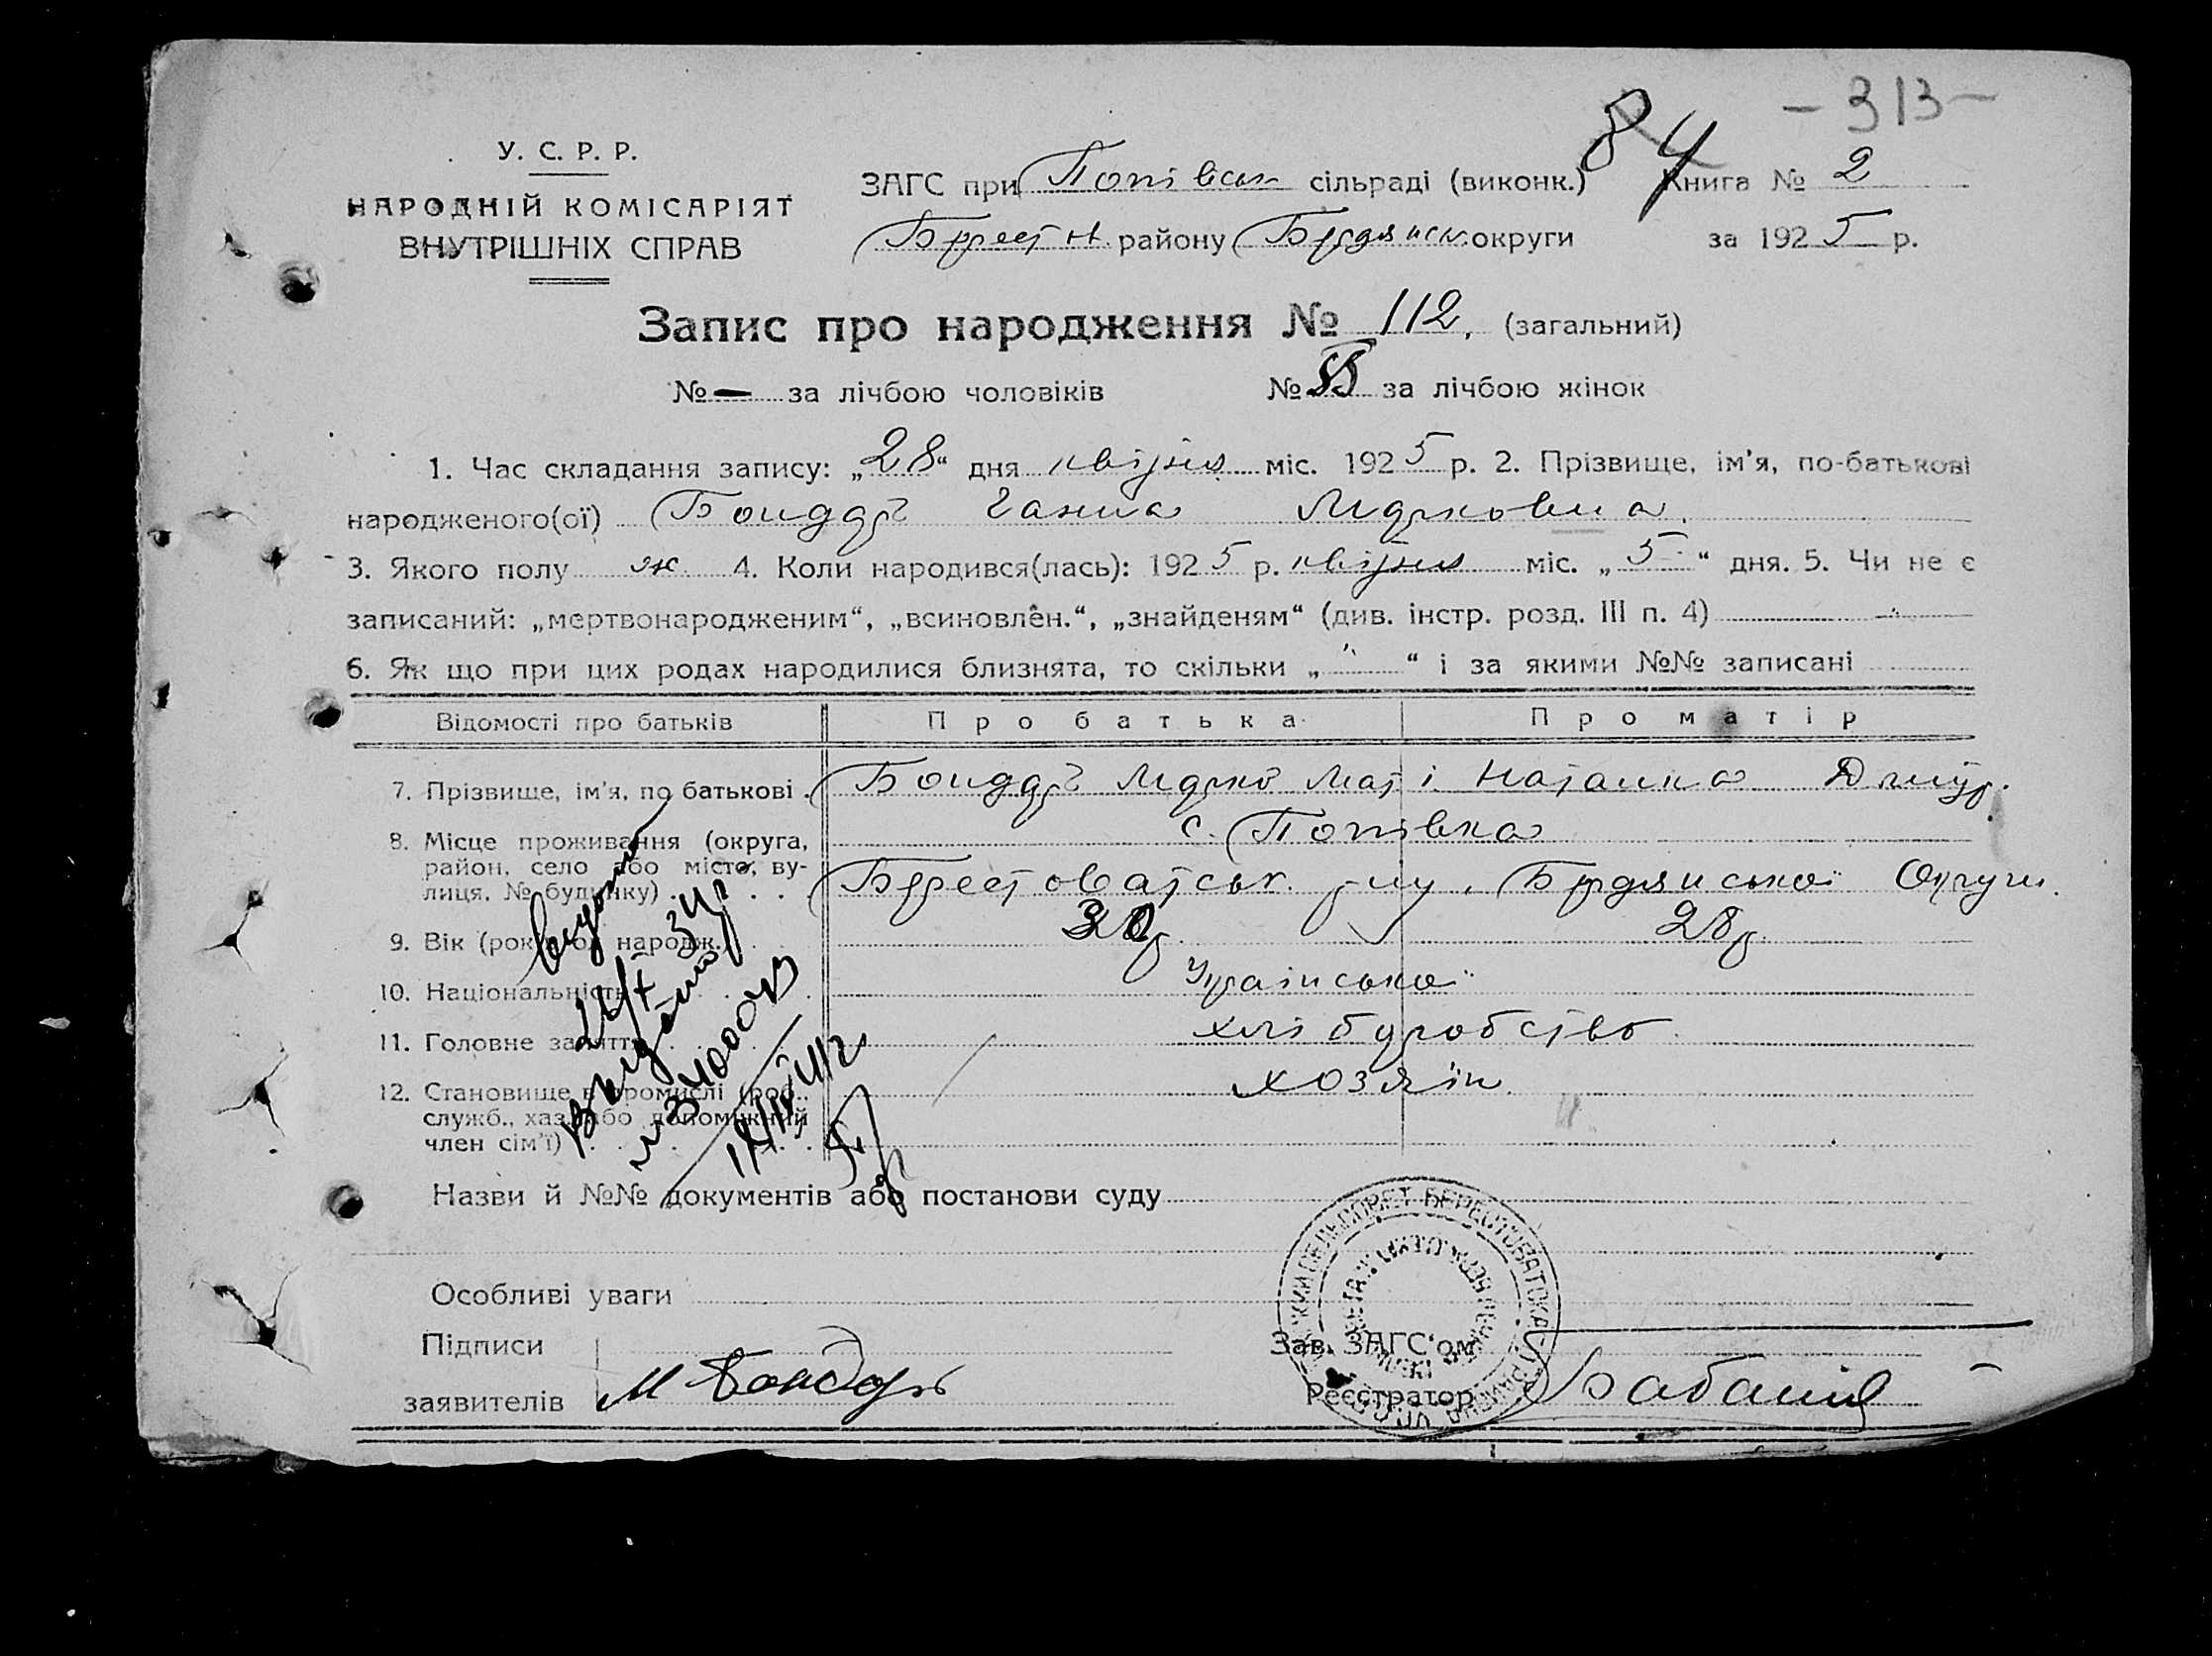 - 313 -
84
У. С. Р. Р.
НАРОДНІЙ КОМІСАРІЯТ
ВНУТРІШНІХ СПРАВ
ЗАГС при Попівськ сільраді (виконк.) Книга № 2
Берест. району Бердянськ округи за 1925 р.
Запис про народження № 112. (загальний)
№ — за лічбою чоловіків № за лічбою жінок
1. Час складання запису: „28“ дня квітня міс. 1925 р. 2. Прізвище, ім'я, по-батькові
народженого(ої) Бондарь Ганна Марковна.
3. Якого полу ж 4. Коли народився(лась): 1925 р. квітня міс. „5“ дня. 5. Чи не є
записаний: „мертвонародженим“, „всиновлен.“, „знайденям“ (див. інстр. розд. III п. 4)
6. Як що при цих родах народилися близнята, то скільки „ “ і за якими №№ записані
Відомості про батьків Про батька Про матір
7. Прізвище, ім'я, по батькові . Бондарь Марко Мат. і Наталка Дмитр.
8. Місце проживання (округа, с. Попівка
район, село або місто, ву-
лиця, № будинку) . . . Берестоватськ. р-ну, Бердянської Округи.
9. Вік (рок народж.) 30 р. 28 р.
10. Національність Української
11. Головне заняття хліборобство.
12. Становище в промислі (роб., хозяїн.
служб., хаз. або допоміжний
член сім'ї) . . .
Видано
34 р.
Выдано
Назви й №№ документів або постанови суду
Особливі уваги
Підписи Зав. ЗАГС'ом
заявителів М Бондарь Реєстратор